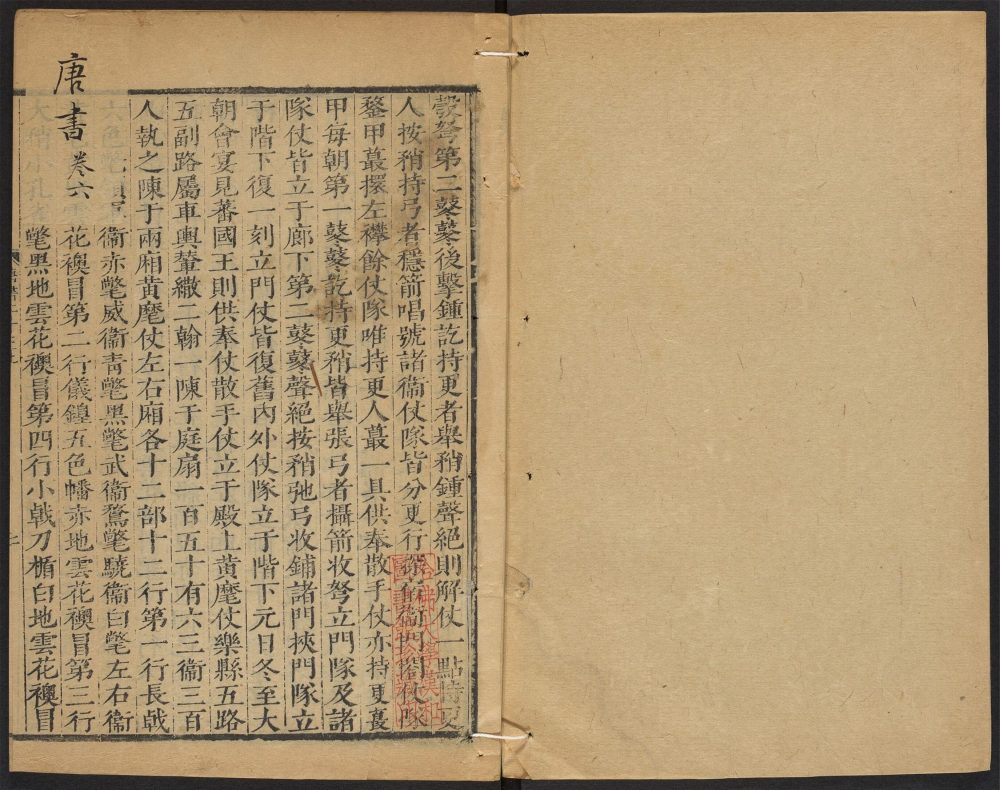 唐書 卷六
彀弩第二鼕鼕後擊鍾訖持更者舉矟鍾聲絕則解仗一點持更
人按矟持弓者穩箭唱號諸衞仗隊皆分更行
鍪甲蕞擐左襻餘仗隊唯持更人蕞一具供奉散手仗亦持更蕞
甲每朝第一鼕鼕訖持更矟皆舉張弓者攝箭收弩立門隊及諸
隊仗皆立于廊下第二鼕鼕聲絕按矟弛弓收鋪諸門挾門隊立
于階下復一刻立門仗皆復舊內外仗隊立于階下元日冬至大
朝會宴見蕃國王則供奉仗散手仗立于殿上黃麾仗樂縣五路
五副路屬車輿輦繖二翰一陳于庭扇一百五十有六三衞三百
人執之陳于兩廂黃麾仗左右廂各十二部十二行第一行長戟
六色氅領軍衞赤氅威衞青氅黑氅武衞鶩氅驍衞白氅左右衞
花襖冒第二行儀鍠五色幡赤地雲花襖冒第三行
大矟小孔
氅黑地雲花襖冒第四行小戟刀楯白地雲花襖冒